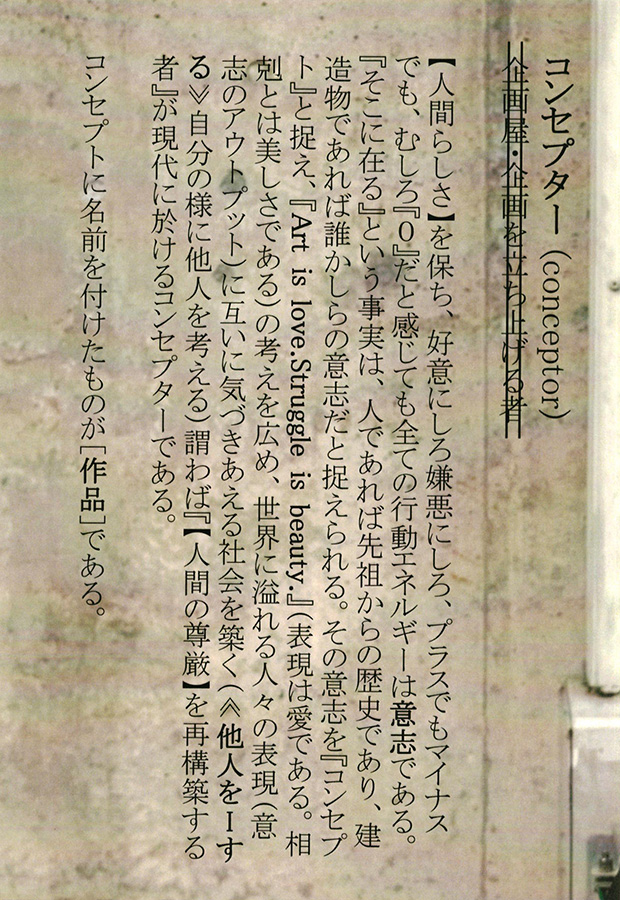 コンセプター (conceptor)
企画屋・企画を立ち上げる者
【人間らしさ】を保ち、好意にしろ嫌悪にしろ、プラスでもマイナス
でも、むしろ『0』だと感じても全ての行動エネルギーは意志である。
『そこに在る』という事実は、人であれば先祖からの歴史であり、建
造物であれば誰かしらの意志だと捉えられる。その意志を『コンセプ
ト』と捉え、『Art is love.Struggle is beauty.』(表現は愛である。相
剋とは美しさである)の考えを広め、世界に溢れる人々の表現(意
志のアウトプット)に互いに気づきあえる社会を築く(≪他人をIす
る≫自分の様に他人を考える)謂わば『【人間の尊厳】を再構築する
者』が現代に於けるコンセプターである。
コンセプトに名前を付けたものが[作品]である。